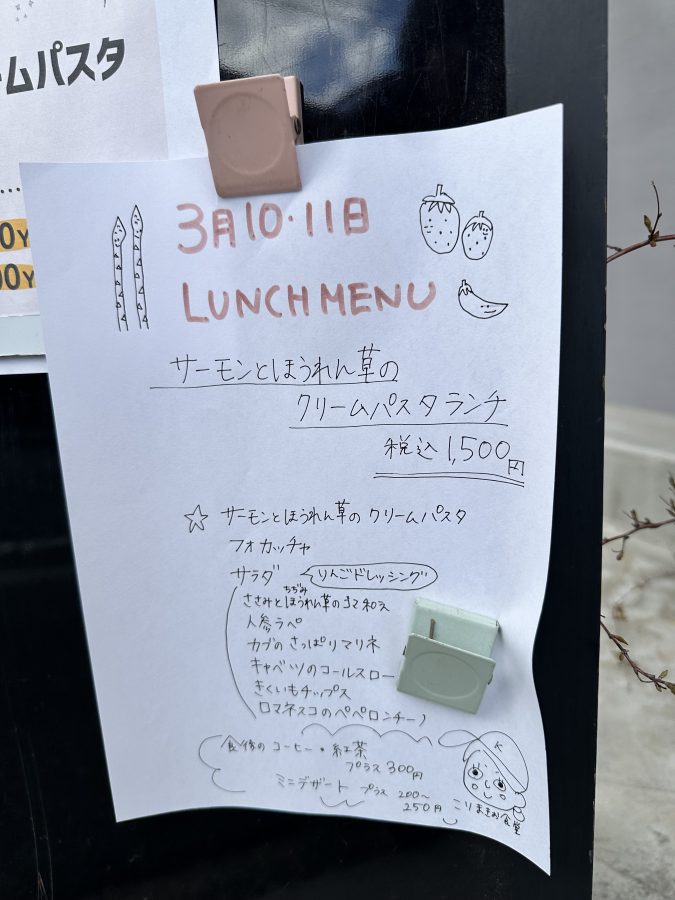 ームパスタ
0Y
00Y
3月10・11日
LUNCH MENU
サーモンとほうれん草の
クリームパスタランチ
税込1,500円
☆ サーモンとほうれん草のクリームパスタ
フォカッチャ
サラダ りんごドレッシング
ちぢみ
ささみとほうれん草のゴマ和え
人参ラペ
カブのさっぱりマリネ
キャベツのコールスロー
きくいもチップス
ロマネスコのペペロンチーノ
食後のコーヒー・紅茶
プラス300円
ミニデザート プラス 200〜
250円
こりまきお食堂